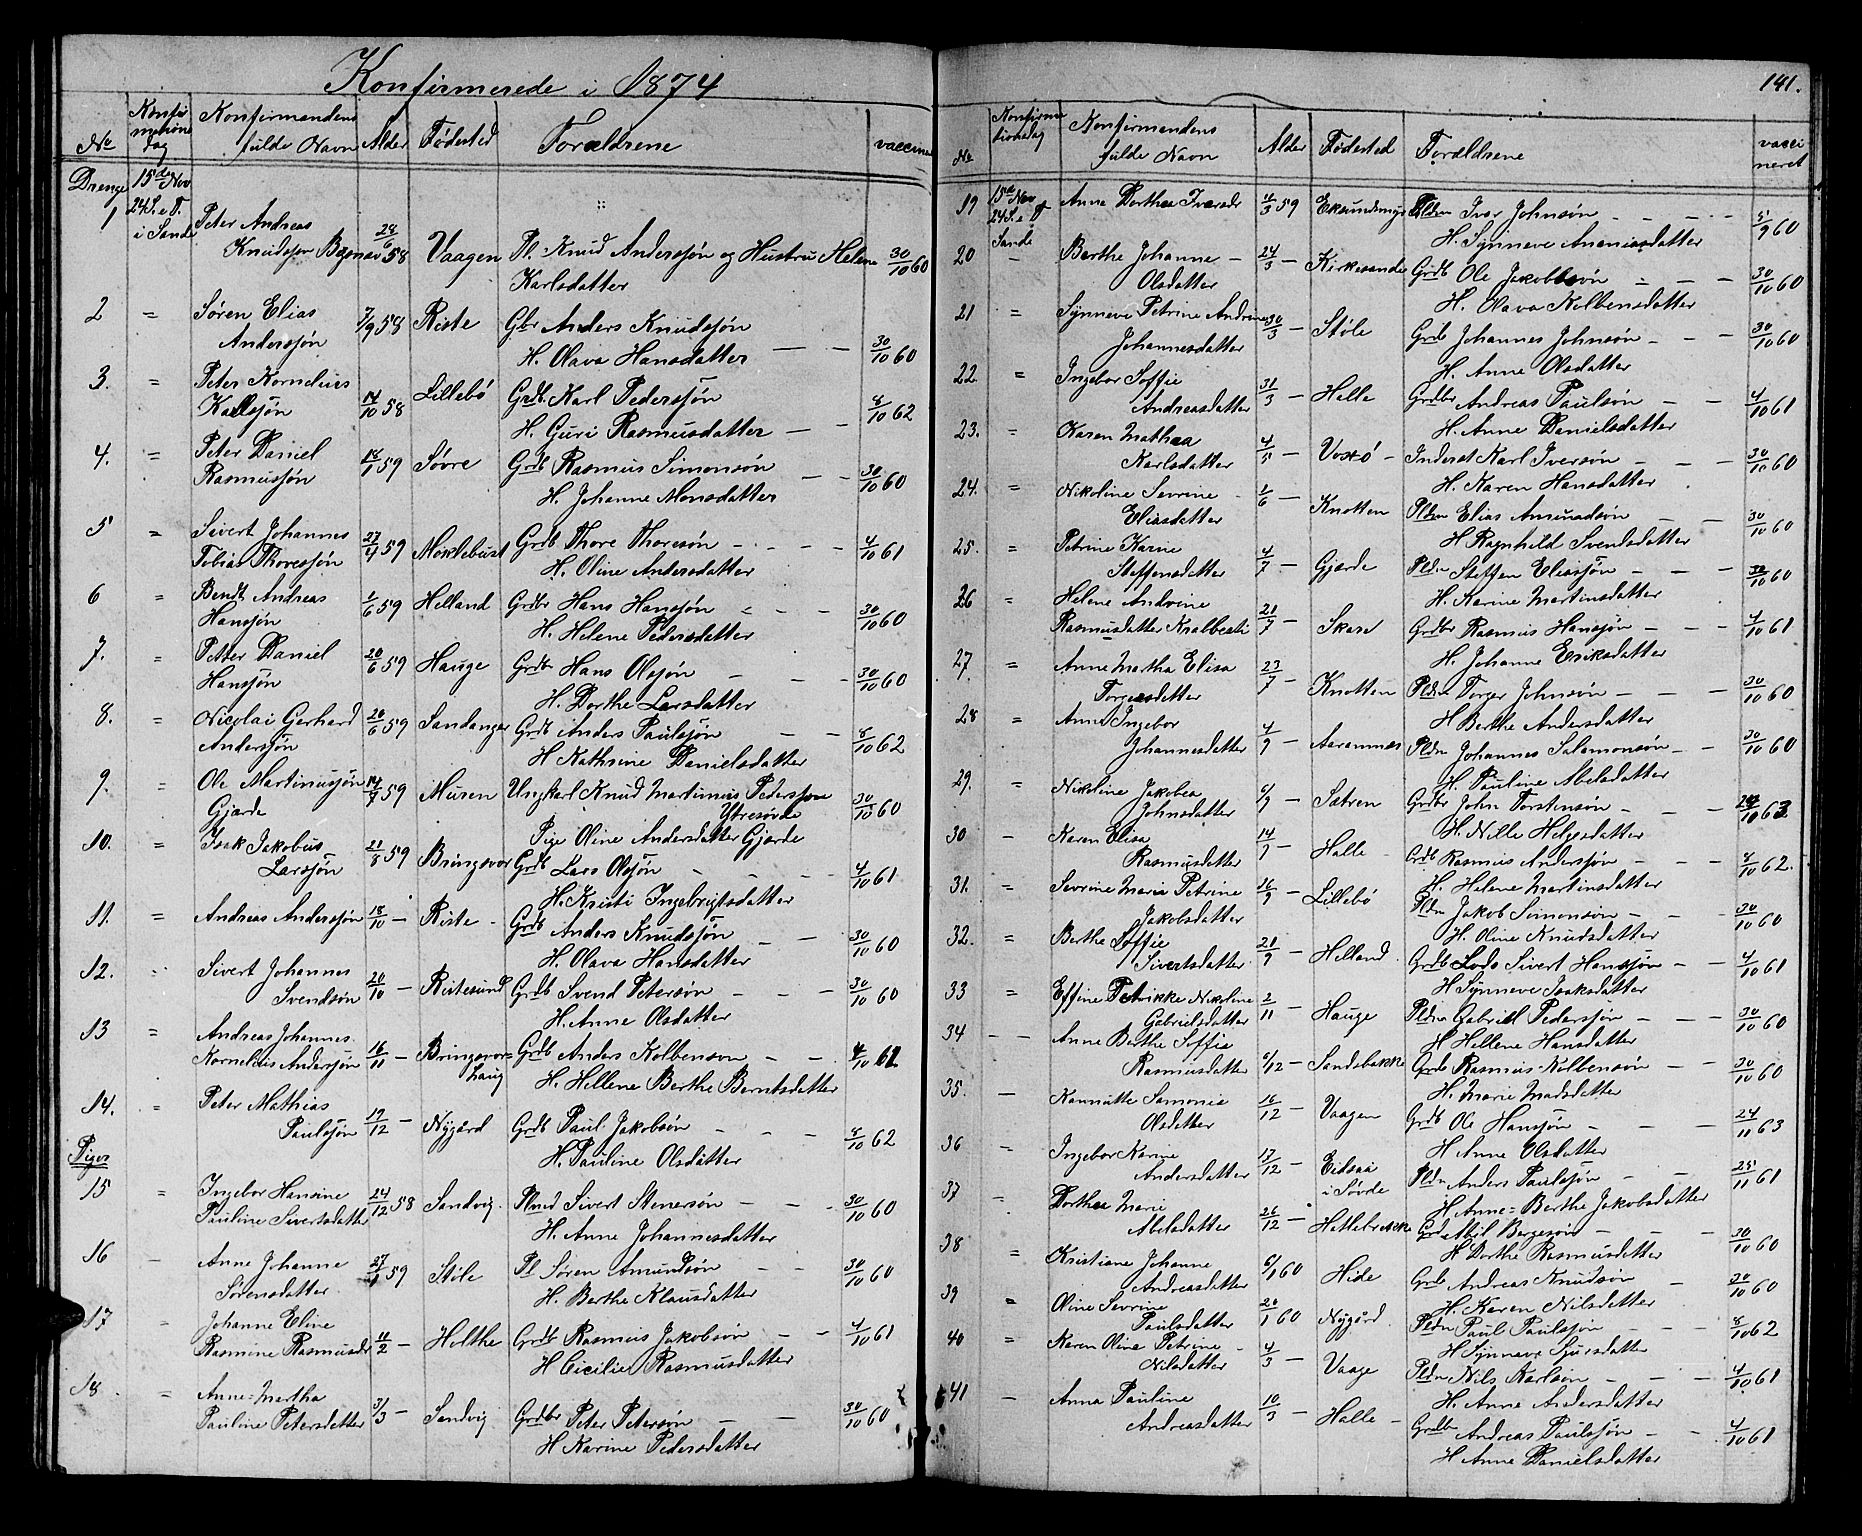 Konfirmerede i 1874
No
Konfirmations dag
Konfirmandens fulde Navn
Alder
Fødested
Forældrene
vaccine
Drenge 15de Nov
1 24 S. e T. i Sande Peter Andreas
Knudsøn 28/6 58 Vaagen Pl. Knud Anderssøn og Hustru Helene 30/10 60
Karlsdatter
2 = Søren Elias 7/9 58 Riste Gbr Anders Knudsøn
Anderssøn H. Olava Hansdatter — — 30/10 60
3. = Peter Kornelius Lillebø Grdb Karl Pederssøn
Kallsøn 14/10 58 H. Guri Rasmusdatter — — 8/10 62
4. = Peter Daniel 18/1 59 Søvre Grdb Rasmus Simonsøn
Rasmussøn H. Johanne Monsdatter — — 30/10 60
5 = Sivert Johannes 27/4 59 Møklebust Grdb Thore Thoresøn — 4/10 61
Tobias Thoressøn H. Oline Andersdatter
6 = Bendt Andreas 1/6 59 Helland Grdbr Hans Hanssøn — — 30/10 60
Hanssøn H. Helene Pedersdatter
7. = Petter Daniel 20/6 59 Hauge Grdbr Hans Olesøn — — 30/10 60
Hanssøn H. Dorthe Larsdatter
8. = Nicolai Gerhard 20/6 59 Sandanger Grdb Anders Paulssøn — — 8/10 62
Anderssøn H Kathrine Danielsdatter
9. = Ole Martinussøn 14/7 59 Muren Ungkarl Knud Martinus Pederssøn 30/10 60
Gjærde Ytresøvde
Pige Oline Andersdatter Gjærde
10. = Isak Jakobus 21/8 59 Bringsvor Grdb Lars Olssøn — — 4/10 61
Larssøn H. Kristi Ingebrigtsdatter
11. = Andreas Anderssøn 18/10 — Riste Grdb Anders Knudssøn — — 30/10 60
H. Olava Hansdatter
12. Sivert Johannes 20/10 — Ristesund Grdb Svend Petersøn — — 30/10 60
Svendsøn H. Anne Olsdatter
13 = Andreas Johannes
Kornelius Anderssøn 16/11 — Bringsvor= Grdb Anders Kolbenson — — 4/10 61
haug H. Hellene Berthe Berntsdatter
14. = Peter Mathias
Paulssøn 17/12 — Nygård Grdb Paul Jakobsøn — — — 8/10 62
H. Pauline Olsdatter
Piger
15 = Ingebor Hansine 24/12 58 Sandvig Plmd Sivert Stenersøn — — 30/10 60
Pauline Sivertsdatter H. Anne Johannesdatter
16 — Anne Johanne 27/1 59 Støle Pl Søren Amundsøn — — 30/10 60
Sørensdatter H. Berthe Klausdatter
17 = Johanne Eline
Rasmine Rasmusdr 11/2 — Holthe Grdb Rasmus Jakobsøn — — 4/10 61
H Cicilie Rasmusdatter
18 = Anne-Martha
Pauline Petersdatter 3/3 — Sandvig Grdbr Peter Petersøn — — 30/10 60
H Karine Pedersdatter
141.
No
Konfirmationsdag
Konfirmandens fulde Navn
Alder
Fødested
Forældrene
vaccineret
19 15de Nov 24 S. e T Sande Anne Dorthea Iversdr 11/3 59 Eksund Pldm Ivar Johnsøn — — — 5/9 60
H. Synneve Ananiasdatter
20 — Berthe Johanne — 24/3 — Kirkesande Grdb Ole Jakobsøn — — — 30/10 60
Olsdatter H. Olava Kolbensdatter
21 = Synneve Petrine Andrine 30/3 — Støle Grdb Johannes Johnsøn — — — 30/10 60
Johannesdatter H. Anne Olsdatter
22 = Ingebor Soffie 31/3 — Halle Grdbr Andreas Paulsøn — — 4/10 61
Andreasdatter H. Anne Danielsdatter
23. = Karen Mathea 4/5 — Voxø — Inderst Karl Iversøn — — — 30/10 60
Karlsdatter H. Karen Hansdatter
24. = Nikoline Sevrine 1/6 — Knotten Pldm Elias Amundsøn — — 30/10 60
Eliasdatter H Ragnhild Svendsdatter
25. = Petrine Karine 4/7 — Gjærde Pldm Steffen Eliassøn — — — 30/10 60
Steffensdatter H. Karine Martinsdatter
26 = Helene Andrine 21/7 — Skare Grdbr Rasmus Hanssøn — — 4/10 61
Rasmusdatter H. Johanne Eriksdatter
27. = Anne Martha Elisa 23/7 — Knotten Pldm Torger Johnsøn — — — 30/10 60
Torgersdatter H Berthe Andersdatter
28 = Anne Ingebor 4/9 — Aaramnes Pldm Johannes Salamonsøn — — 30/10 60
Johannesdatter H. Pauline Abelsdatter
29. = Nikoline Jakobea 6/9 — Sætren Grdbr John Torstensøn — —
Johnsdatter H. Nille Helgesdatter
30 — Karen Elisa 14/9 — Halle — Grdb Rasmus Anderssøn — — 8/10 62.
Rasmusdatter H. Helene Martinsdatter
31. = Sevrine Marie Petrine 16/9 — Lillebø Pldm Jakob Simonsøn — — 30/10 60
Jakobsdatter H. Oline Knudsdatter
32. = Berthe Soffie 21/9 — Helland Grdb Sivert Hanssøn — — 4/10 61
Sivertsdatter H Synneve Isaksdatter
33 = Effine Petrikke Nikoline 2/11 — Hauge Pldm Gabriel Pederssøn — — — 30/10 60
Gabrielsdatter H Hellene Hansdatter
34 — — Anne Berthe Soffie 6/12 — Sandsbakke Grdb Rasmus Kolbensøn — — 30/10 60
Rasmusdatter H. Marie Madsdatter
35. — Samonie 16/12 — Vaagen Grdb Ole Hanssøn — — — 24/11 63
Olsdatter H Anne Olsdatter
36 — Ingebor Karine 17/12 — Eidsaa Pldm Anders Paulssøn — — 25/11 61
Andersdatter i Søvde H Anne=Berthe Jakobsdatter
37 — Dorthea Marie 26/12 — Hatlebrekke Grdb Abil Børgesøn — — — 30/10 60
Abelsdatter H Dorthe Rasmusdatter
38 = Kristiane Johanne 6/1 60 Hide Grdb Andreas Knudsøn — 30/10 60
Andreasdatter H. Karen Nilsdatter
39 = Oline Sevrine 20/1 60 Nygård Pldm Paul Paulssøn — — 8/10 62
Paulsdatter H Synneve Sjursdatter
40 = Karen Oline Petrine 4/3 — Vaage Pldm Nils Karlsøn — — — 4/10 61
Nilsdatter H. Anne Andersdatter
41 — Anna Pauline 10/3 — Halle — Grdbr Andreas Paulssøn — — 4/10 61
Andreasdatter H Anne Danielsdatter